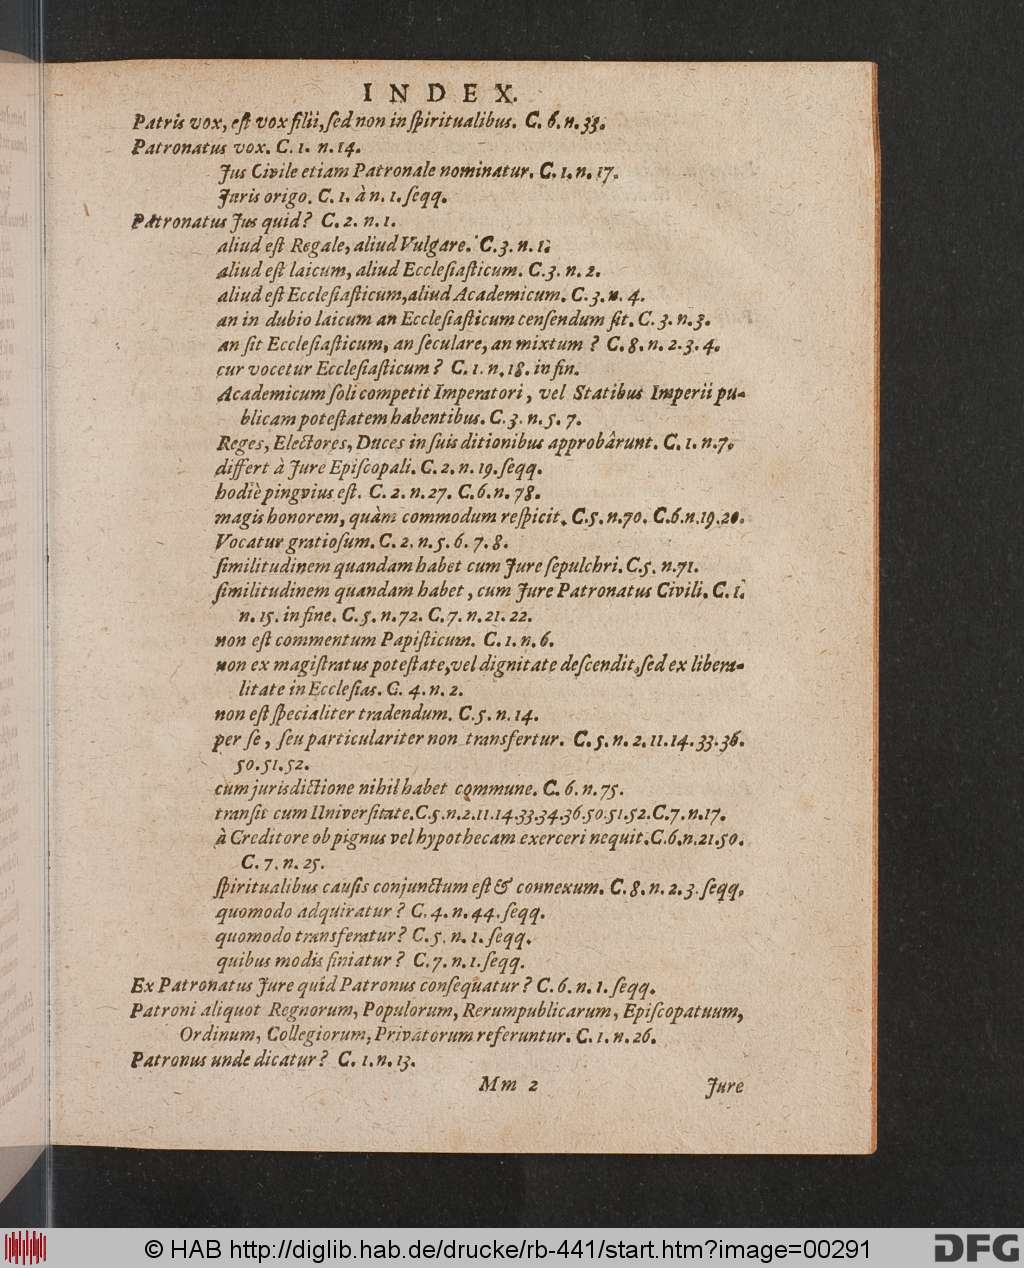 INDEX.
Patris vox, eſt vox filii, ſed non in ſpiritualibus. C. 6. n. 33.
Patronatus vox. C. 1. n. 14.
Jus Civile etiam Patronale nominatur. C. 1. n. 17.
Juris origo. C. 1. à n. 1. ſeqq.
Patronatus Jus quid? C. 2. n. 1.
aliud eſt Regale, aliud Vulgare. C. 3. n. 1.
aliud eſt laicum, aliud Eccleſiaſticum. C. 3. n. 2.
aliud eſt Eccleſiaſticum, aliud Academicum. C. 3. n. 4.
an in dubio laicum an Eccleſiaſticum cenſendum ſit. C. 3. n. 3.
an ſit Eccleſiaſticum, an ſeculare, an mixtum? C. 8. n. 2. 3. 4.
cur vocetur Eccleſiaſticum? C. 1. n. 18. in fin.
Academicum ſoli competit Imperatori, vel Statibus Imperii pu-
blicam poteſtatem habentibus. C. 3. n. 5. 7.
Reges, Electores, Duces in ſuis ditionibus approbârunt. C. 1. n. 7.
differt à Jure Epiſcopali. C. 2. n. 19. ſeqq.
hodiè pingvius eſt. C. 2. n. 27. C. 6. n. 78.
magis honorem, quàm commodum reſpicit. C. 5. n. 70. C. 6. n. 19. 20.
Vocatur gratioſum. C. 2. n. 5. 6. 7. 8.
ſimilitudinem quandam habet cum Jure ſepulchri. C. 5. n. 71.
ſimilitudinem quandam habet, cum Jure Patronatus Civili. C. 1.
n. 15. in fine. C. 5. n. 72. C. 7. n. 21. 22.
non eſt commentum Papiſticum. C. 1. n. 6.
non ex magiſtratus poteſtate, vel dignitate deſcendit, ſed ex libera-
litate in Eccleſias. C. 4. n. 2.
non eſt ſpecialiter tradendum. C. 5. n. 14.
per ſe, ſeu particulariter non transfertur. C. 5. n. 2. 11. 14. 33. 36.
50. 51. 52.
cum jurisdictione nihil habet commune. C. 6. n. 75.
tranſit cum Univerſitate. C. 5. n. 2. 11. 14. 33. 34. 36. 50. 51. 52. C. 7. n. 17.
à Creditore ob pignus vel hypothecam exerceri nequit. C. 6. n. 21. 50.
C. 7. n. 25.
ſpiritualibus cauſis conjunctum eſt & connexum. C. 8. n. 2. 3. ſeqq.
quomodo adquiratur? C. 4. n. 44. ſeqq.
quomodo transferatur? C. 5. n. 1. ſeqq.
quibus modis finiatur? C. 7. n. 1. ſeqq.
Ex Patronatus Jure quid Patronus conſequatur? C. 6. n. 1. ſeqq.
Patroni aliquot Regnorum, Populorum, Rerumpublicarum, Epiſcopatuum,
Ordinum, Collegiorum, Privatorum referuntur. C. 1. n. 26.
Patronus unde dicatur? C. 1. n. 13.
Mm 2 Jure
© HAB http://diglib.hab.de/drucke/rb-441/start.htm?image=00291
DFG